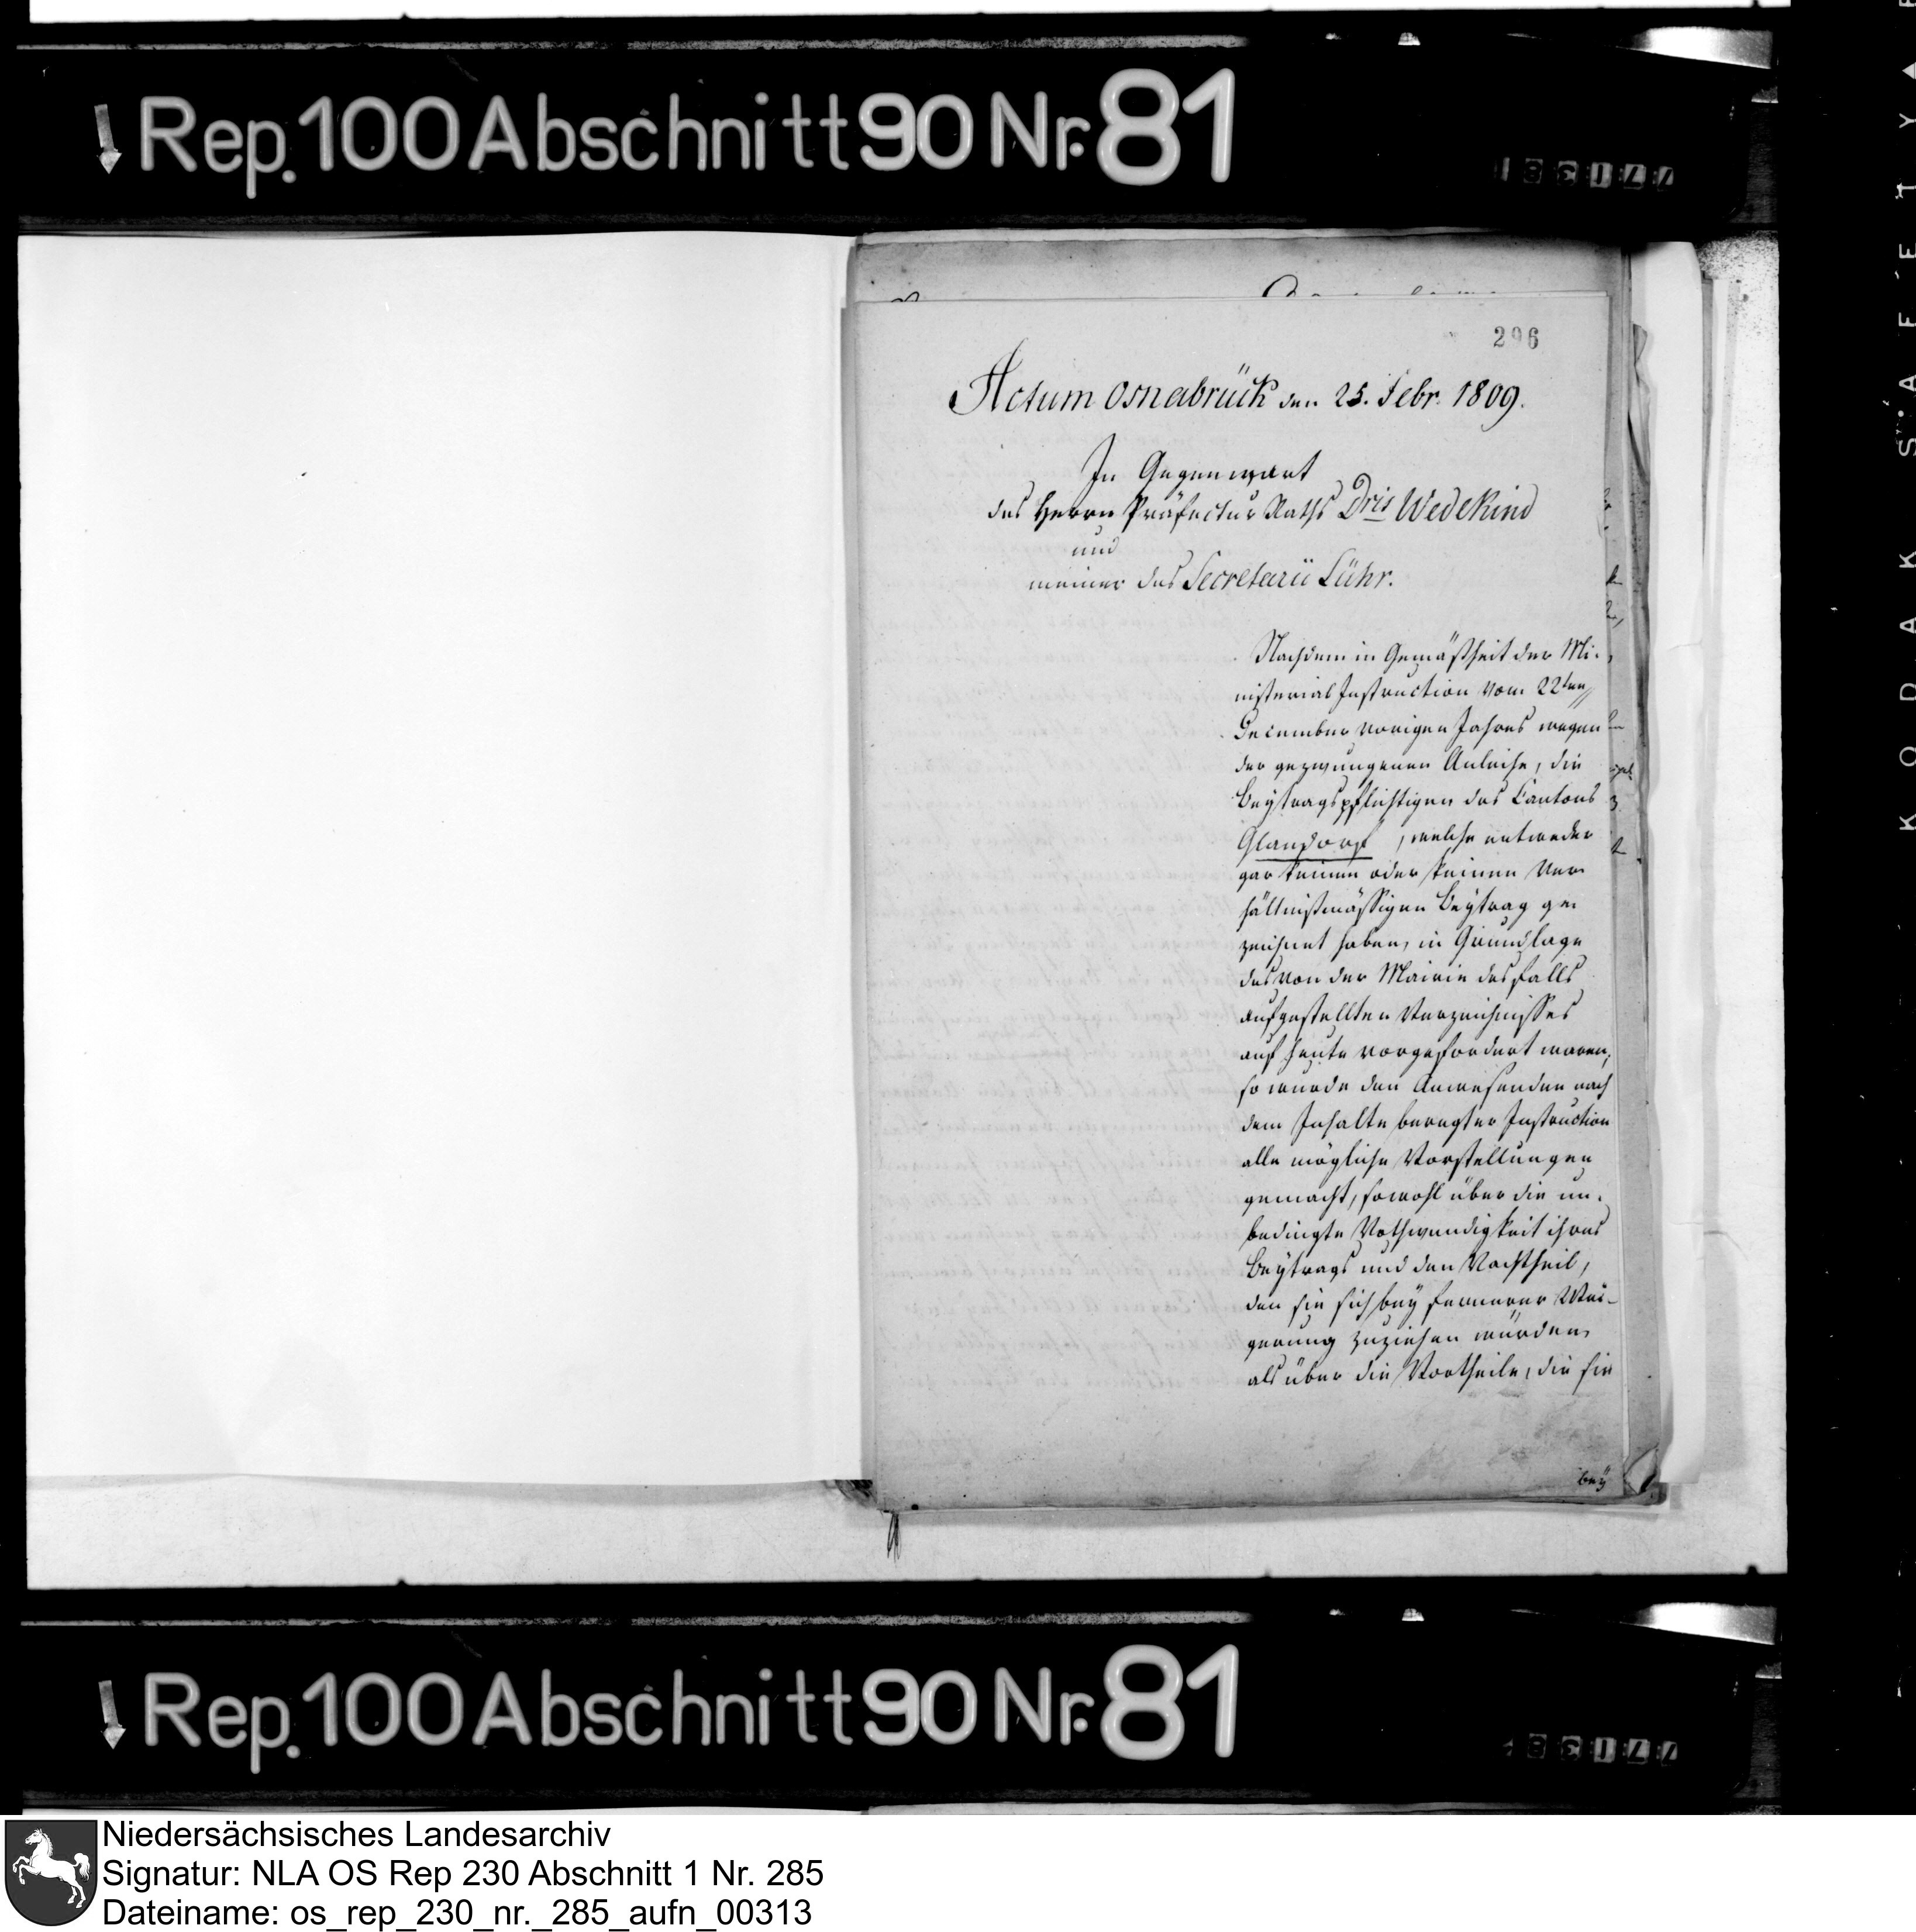 Rep. 100 Abschnitt 90 Nr. 81
296
Actum Osnabrück den 25. Febr. 1809.
In Gegenwart
des Herrn Präfectur Raths Dris Wedekind
und
meiner des Secretarii Lühr.
Nachdem in Gemäßheit der Mi-
nisterial Instruction vom 22ten
December vorigen Jahres wegen
der gezwungenen Anleihe, die
Beytragspflichtigen des Cantons
Glandorf, welche entweder
gar keinen oder keinen Ver
hältnißmässigen Beytrag ge-
zeichnet haben, in Grundlage
des von der Mairie desfalls
aufgestellten Verzeichnisses
auf heute vorgefordert waren,
so wurde den Anwesenden nach
dem Inhalte beregter Instruction
alle mögliche Vorstellungen
gemacht, sowohl über die un-
bedingte Nothwendigkeit ihres
Beytrags und den Nachtheil,
den sie sich bey fernerer Wei-
gerung zuziehen würden,
als über die Vortheile, die sie
bey
Rep. 100 Abschnitt 90 Nr. 81
KODAK SAFETY
Niedersächsisches Landesarchiv
Signatur: NLA OS Rep 230 Abschnitt 1 Nr. 285
Dateiname: os_rep_230_nr._285_aufn_00313